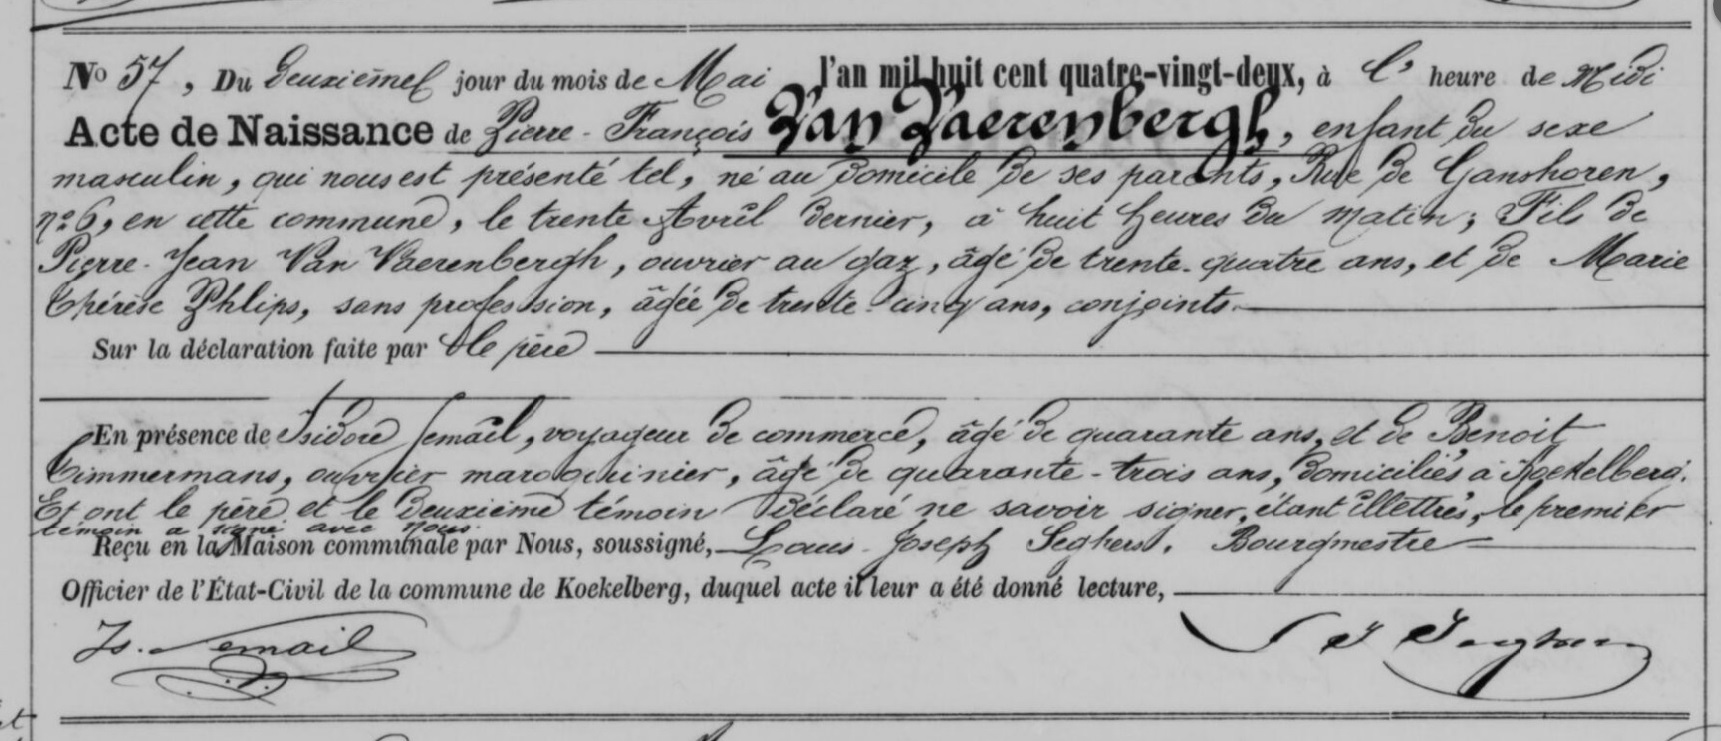 No 57, Du deuxième jour du mois de Mai l'an mil huit cent quatre-vingt-deux, à l' heure de Midi
Acte de Naissance de Pierre-François Van Vaerenbergh, enfant du sexe
masculin, qui nous est présenté tel, né au domicile de ses parents, Rue de Ganshoren,
n° 6, en cette commune, le trente Avril dernier, à huit heures du matin; Fils de
Pierre-Jean Van Vaerenbergh, ouvrier au gaz, âgé de trente-quatre ans, et de Marie
Thérèse Phlips, sans profession, âgée de trente-cinq ans, conjoints.
Sur la déclaration faite par le père
En présence de Isidore Semail, voyageur de commerce, âgé de quarante ans, et de Benoit
Timmermans, ouvrier maroquinier, âgé de quarante-trois ans, domiciliés à Koekelberg.
Et ont le père et le deuxième témoin déclaré ne savoir signer, étant illettrés, le premier
témoin a signé avec nous.
Reçu en la Maison communale par Nous, soussigné, Louis-Joseph Seghers, Bourgmestre
Officier de l'État-Civil de la commune de Koekelberg, duquel acte il leur a été donné lecture,
Is. Semail L J Seghers